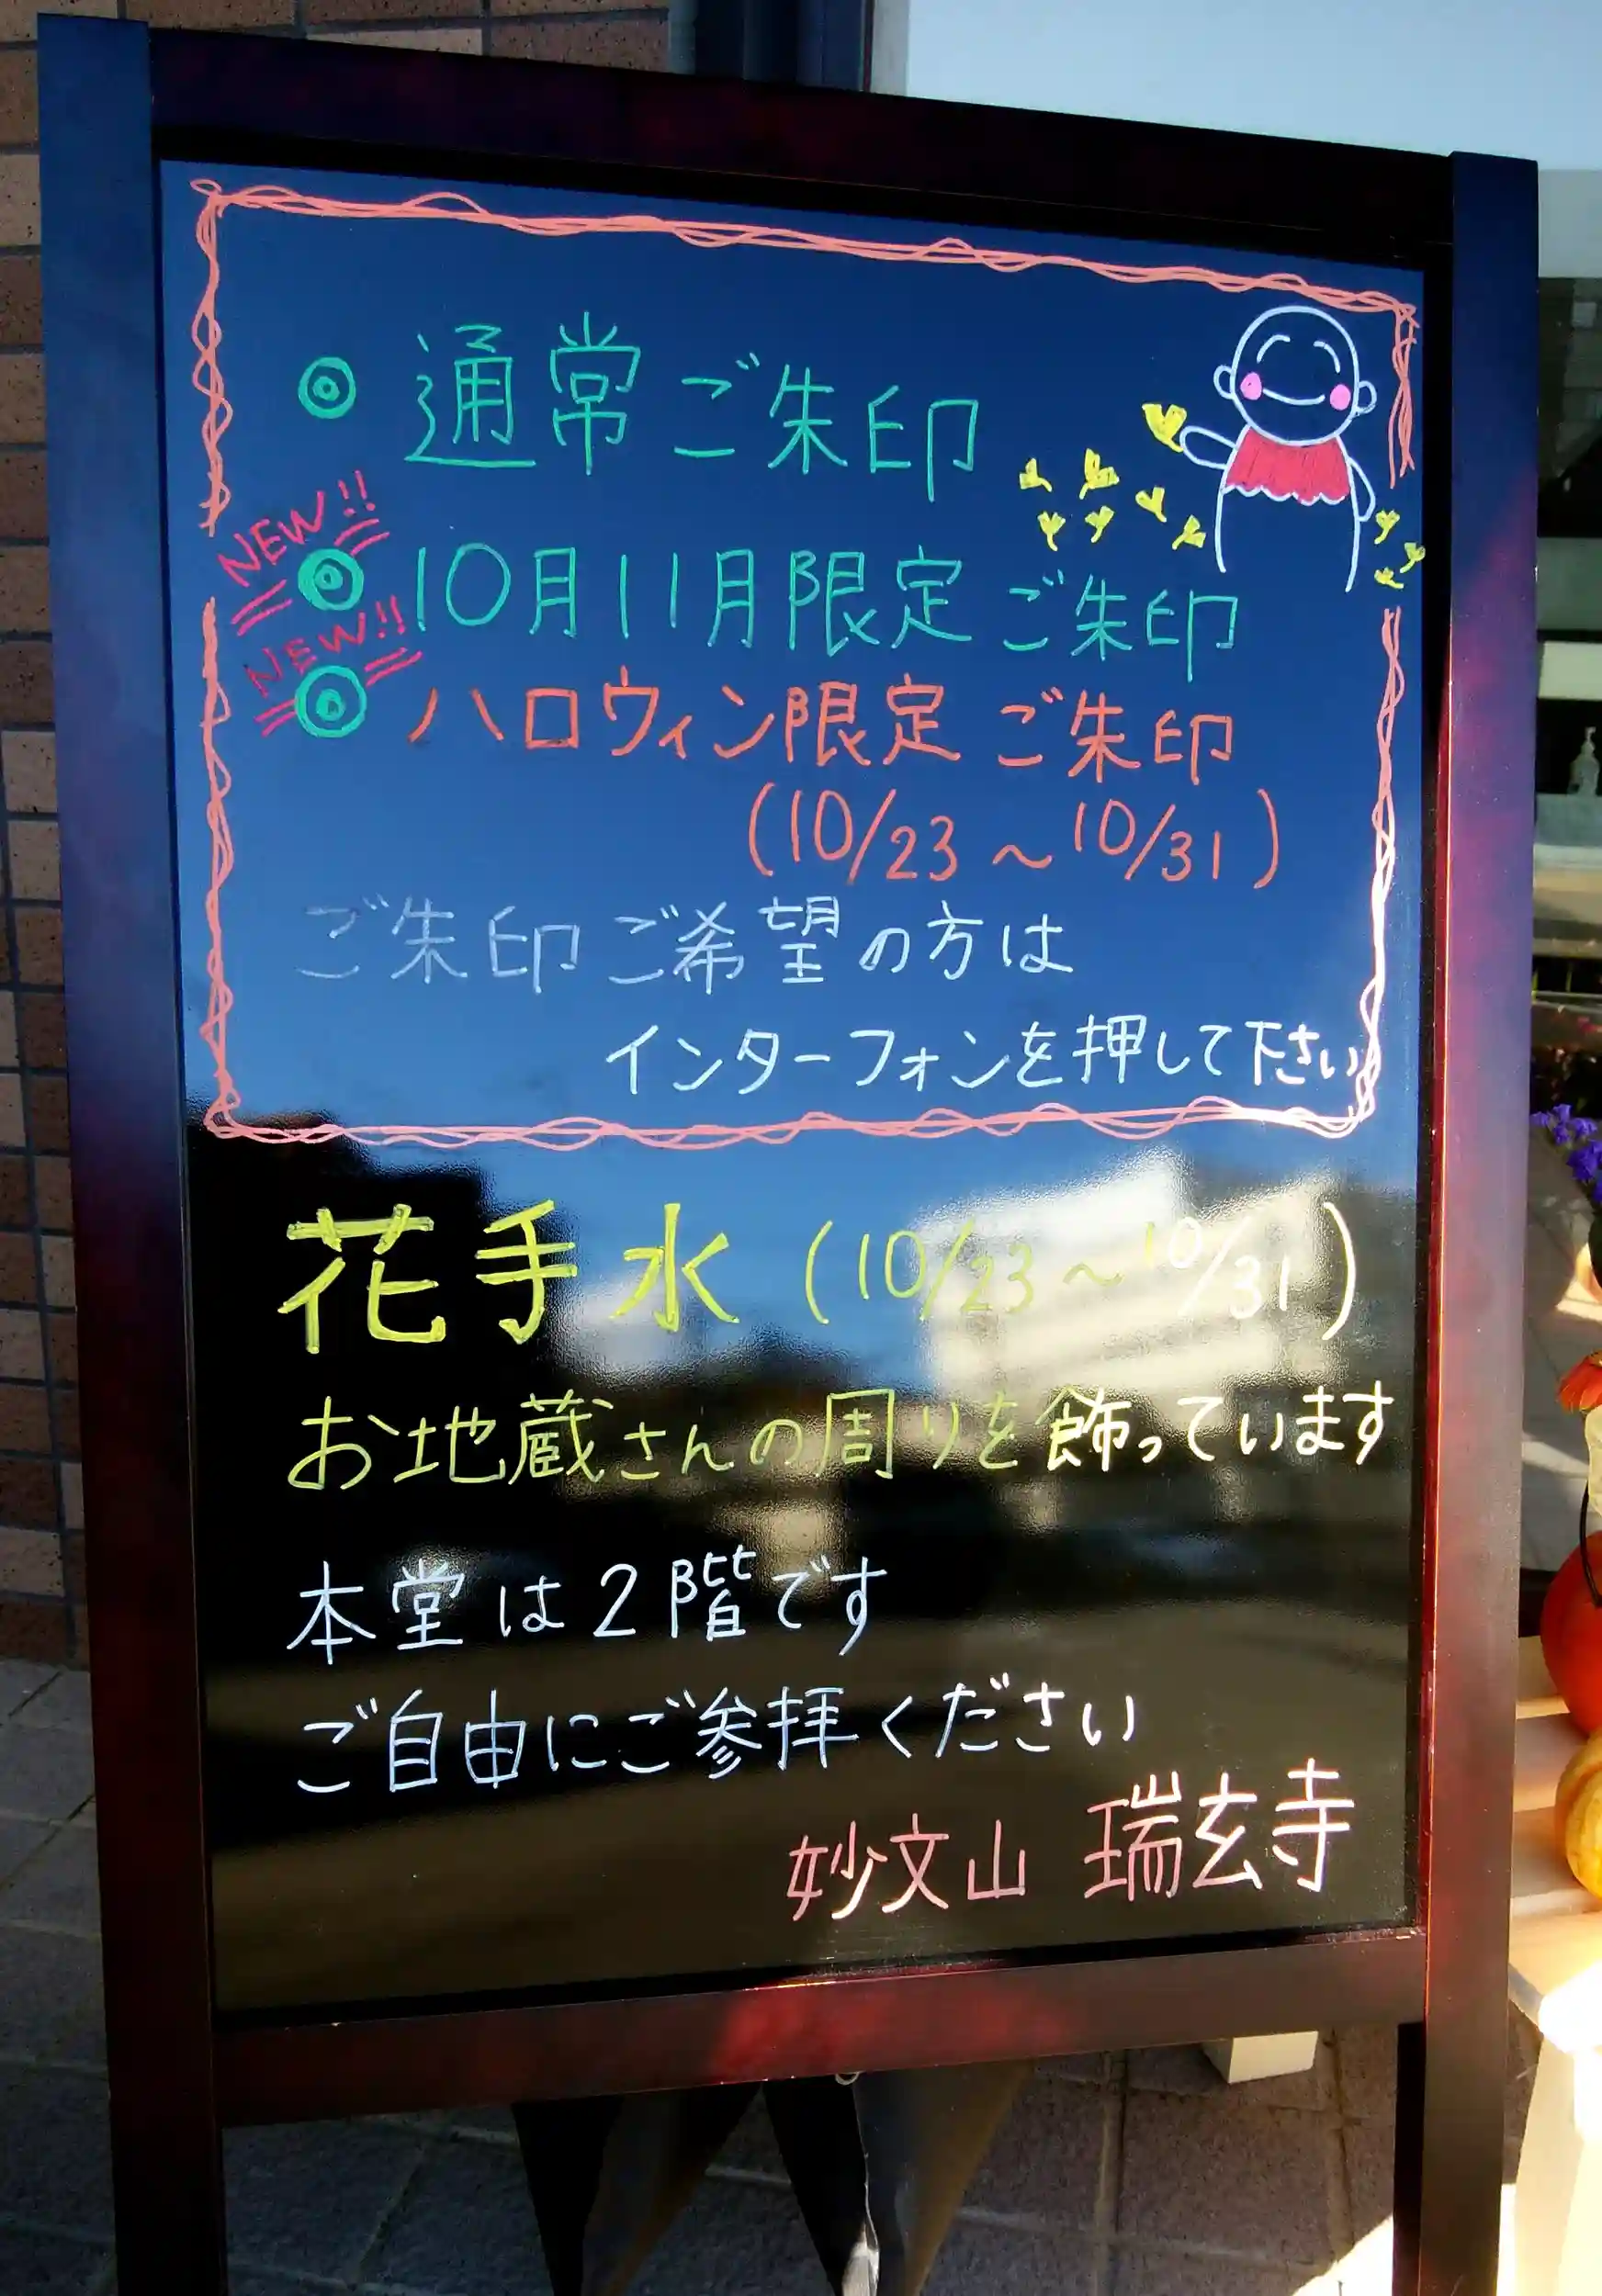 ◎ 通常ご朱印
NEW!!
◎ 10月11月限定ご朱印
NEW!!
◎ ハロウィン限定ご朱印
(10/23～10/31)
ご朱印ご希望の方は
インターフォンを押して下さい
花手水(10/23～10/31)
お地蔵さんの周りを飾っています
本堂は2階です
ご自由にご参拝ください
妙文山 瑞玄寺